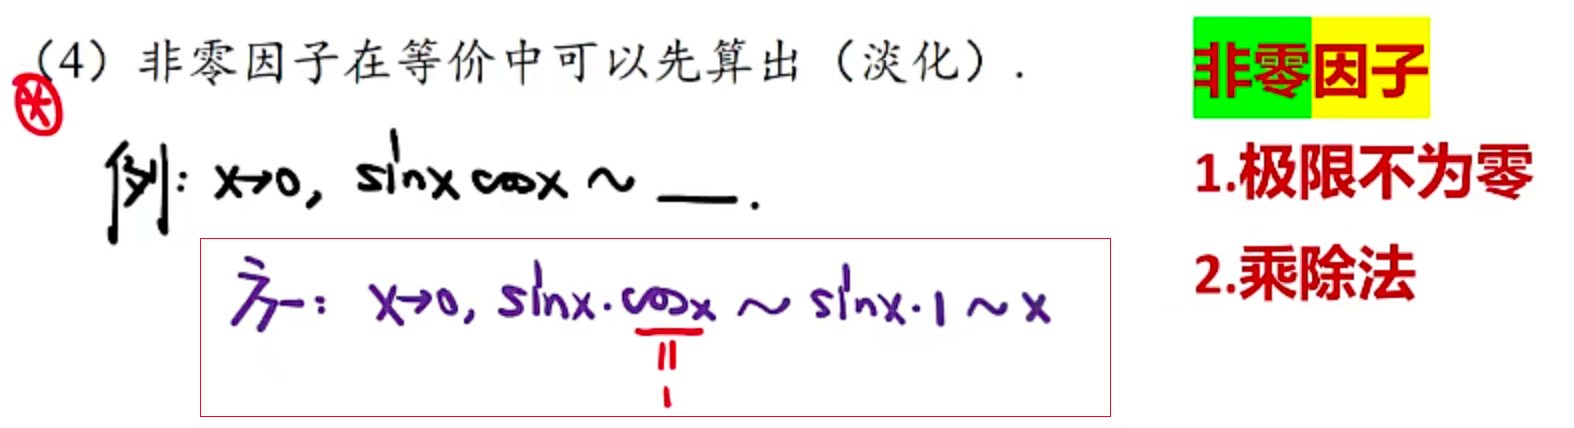 （4）非零因子在等价中可以先算出（淡化）.
例: x→0, sinx cosx ~ __ .
方一: x→0, sinx·cosx ~ sinx·1 ~ x
=
1
非零因子
1.极限不为零
2.乘除法